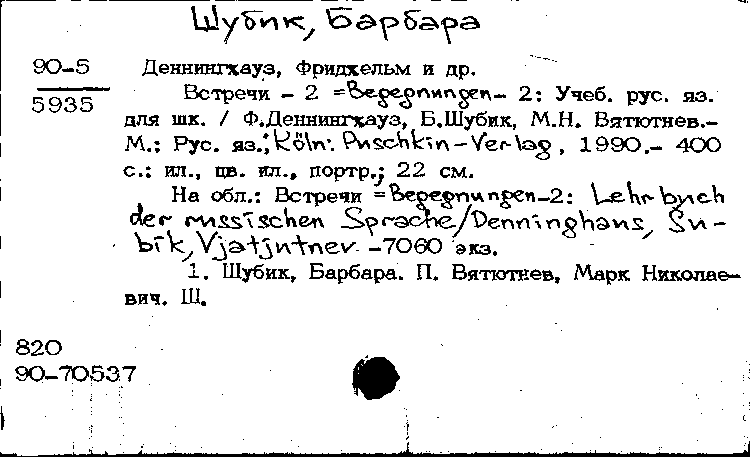 Шубик, Барбара
90-5
5935
Деннингхауз, Фридхельм и др.
Встречи - 2 =Begegnungen- 2: Учеб. рус. яз.
для шк. / Ф.Деннингхауз, Б.Шубик, М.Н. Вятютнев.-
М.: Рус. яз.; Köln: Puschkin-Verlag, 1990.- 400
с.: ил., цв. ил., портр.; 22 см.
На обл.: Встречи =Begegnungen-2: Lehrbuch
der russischen Sprache/Denninghaus, Šu-
bik, Vjatjutnev. -7060 экз.
1. Шубик, Барбара. П. Вятютнев, Марк Николае-
вич. Ш.
820
90-70537